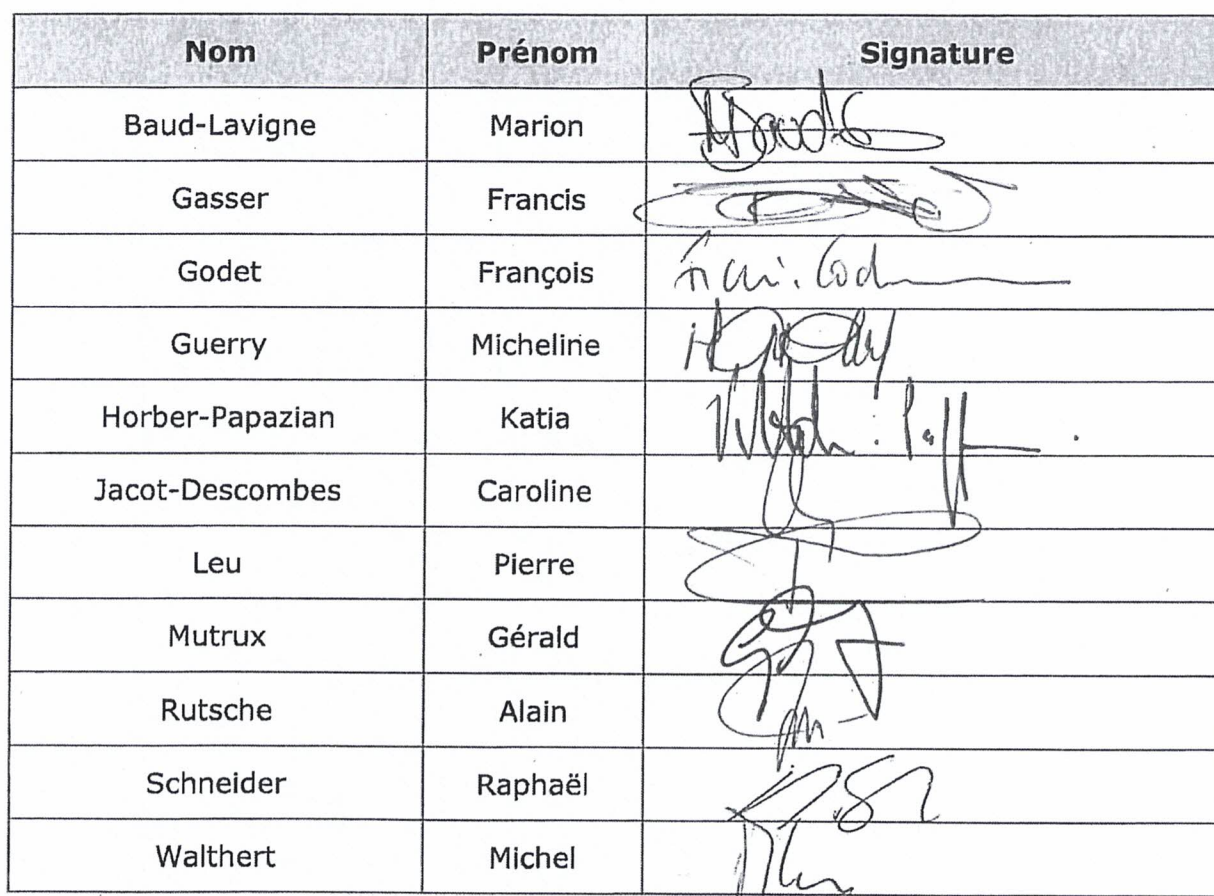 Nom Prénom Signature
Baud-Lavigne Marion
Gasser Francis
Godet François
Guerry Micheline
Horber-Papazian Katia
Jacot-Descombes Caroline
Leu Pierre
Mutrux Gérald
Rutsche Alain
Schneider Raphaël
Walthert Michel